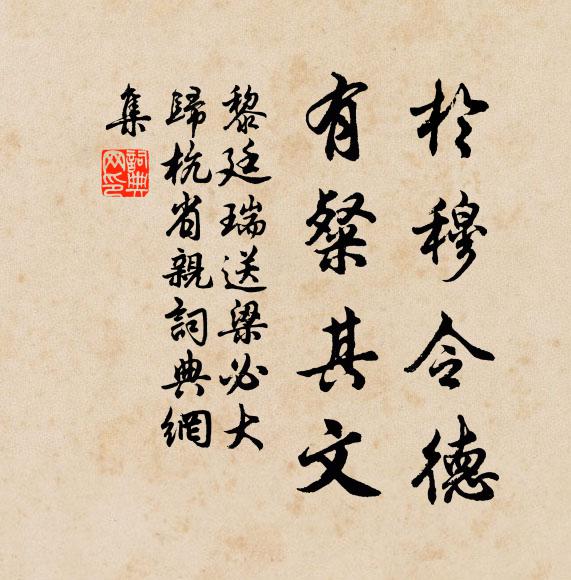 於穆令德
有粲其文
黎廷瑞送梁必大
歸杭省親詞典網
集
詞典網印